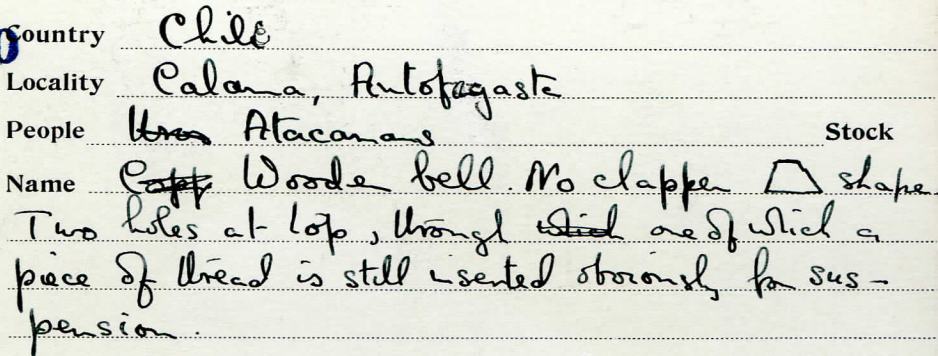 Country Chile
Locality Calama, Antofagasta
People Uros Atacamans Stock
Name Copp Wooden bell. No clapper shape.
Two holes at top, through which one of which a
piece of thread is still inserted obviously for sus-
pension.